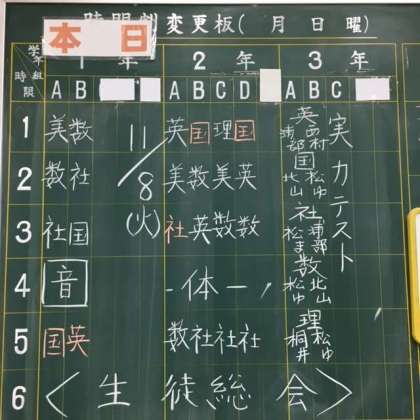 時間割変更板( 月 日 曜)
本日
学年 1年 2年 3年
時限 組 A B A B C D A B C
11/8(火)
実力テスト
1 美数 英国理国 英 西村 浦部
2 数社 美数美英 国 松ゆ 北山
3 社国 社英数数 社 浦部 松ま
4 音 -体- 数 北山 松ゆ
5 国英 数社社社 理 松ゆ 桐井
6 <生徒総会>